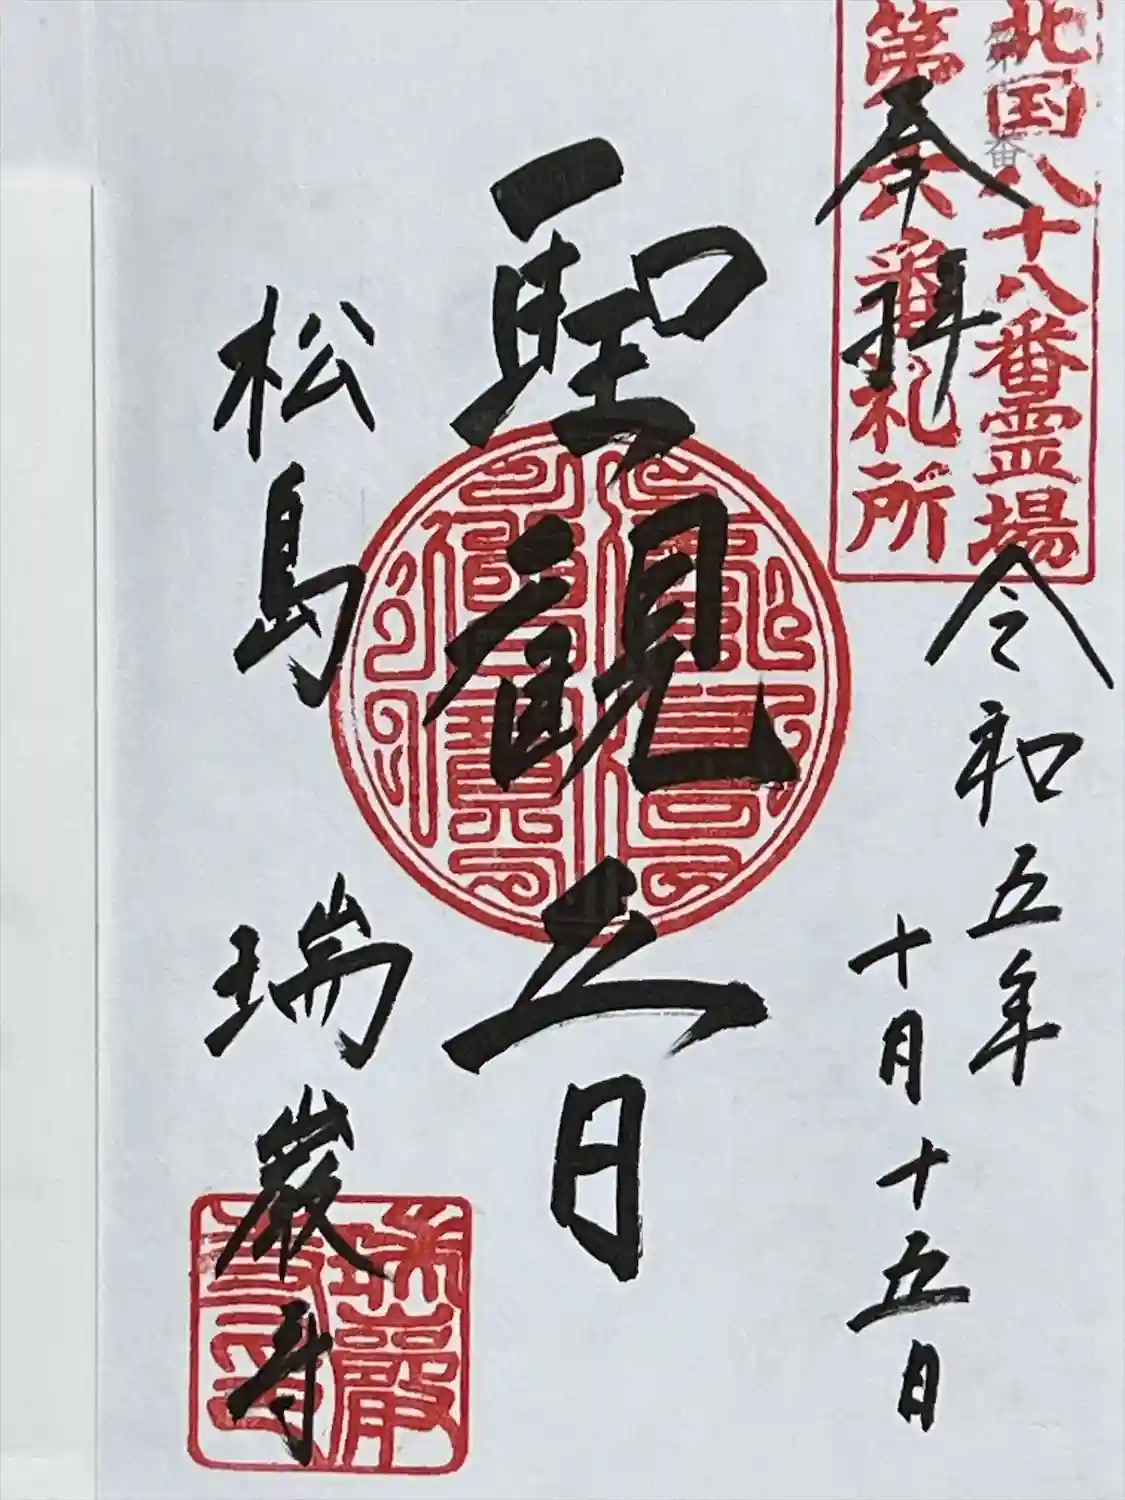 北国八十八番霊場
第六番札所
第 番
奉拝
令和五年
十月十五日
聖観音
松島 瑞巌寺